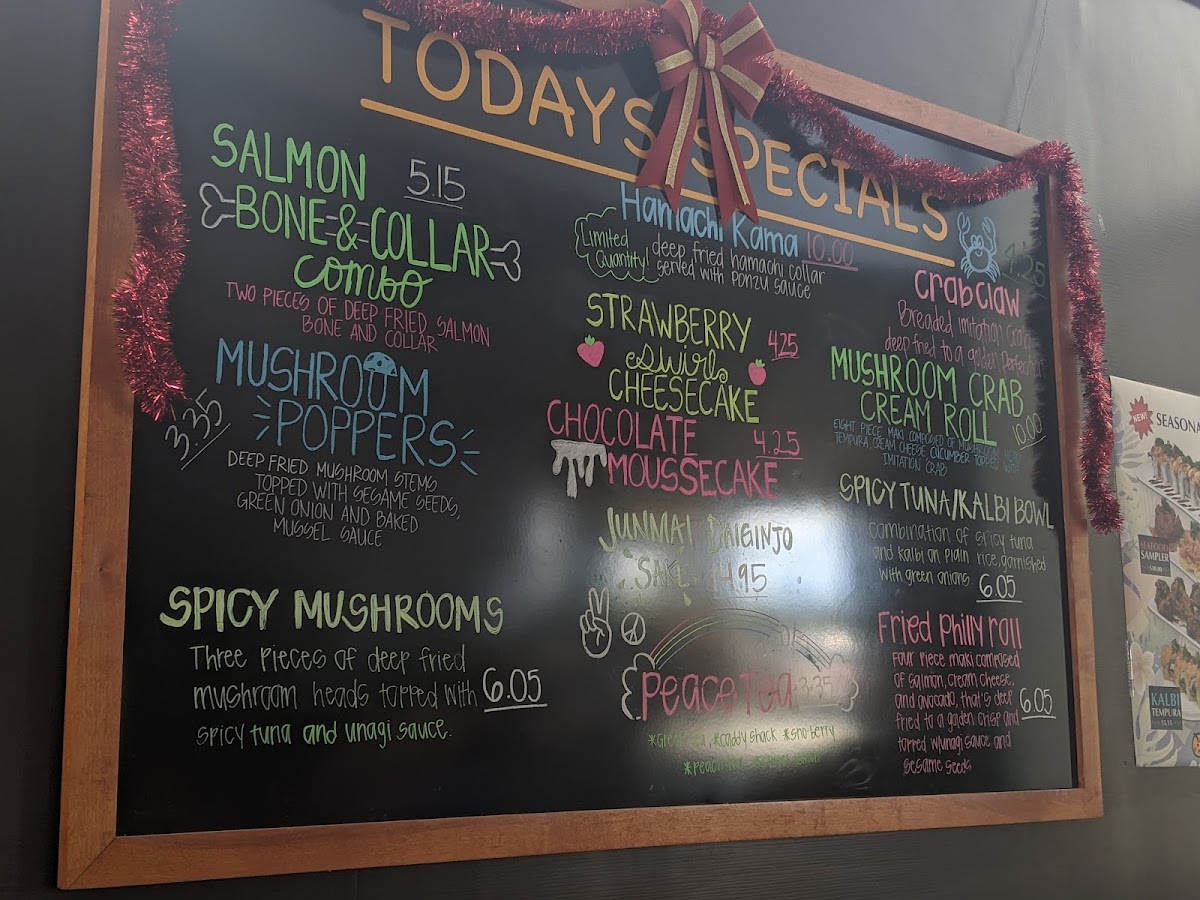 TODAYS SPECIALS
SALMON 5.15
BONE & COLLAR
combo
TWO PIECES OF DEEP FRIED SALMON
BONE AND COLLAR
MUSHROOM
POPPERS
3.35
DEEP FRIED MUSHROOM STEMS
TOPPED WITH SESAME SEEDS,
GREEN ONION AND BAKED
MUSSEL SAUCE
SPICY MUSHROOMS
Three pieces of deep fried
mushroom heads topped with 6.05
spicy tuna and unagi sauce.
Hamachi Kama 10.00
Limited
Quantity!
deep fried hamachi collar
served with ponzu sauce
STRAWBERRY 4.25
swirl
CHEESECAKE
CHOCOLATE 4.25
MOUSSECAKE
JUNMAI DAIGINJO
SAKE 4.95
Peace Tea 3.35
*caddy shack *sno-berry
Crab Claw 4.25
Breaded imitation crab
deep fried to a golden perfection
MUSHROOM CRAB
CREAM ROLL 10.00
EIGHT PIECE MAKI COMPOSED OF MUSHROOM
TEMPURA, CREAM CHEESE, CUCUMBER TOPPED WITH
IMITATION CRAB
SPICY TUNA/KALBI BOWL
combination of spicy tuna
and kalbi on plain rice, garnished
with green onions. 6.05
Fried Philly roll
four piece maki composed
of salmon, cream cheese,
and avocado, that's deep 6.05
fried to a golden crisp and
topped w/unagi sauce and
sesame seeds
NEW! SEASONA
SEAFOOD
SAMPLER
KALBI
TEMPURA